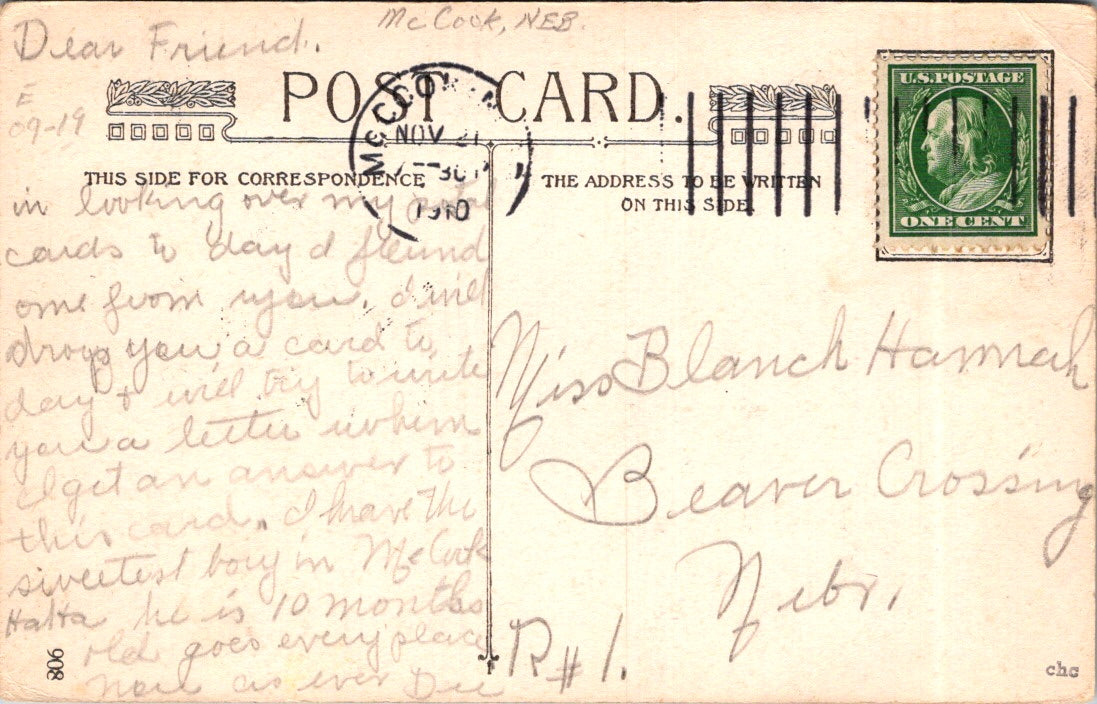 McCook, NEB.
Dear Friend.
POST CARD.
E
09-19
McCOOK
NOV 21
1910
U.S. POSTAGE
ONE CENT
THIS SIDE FOR CORRESPONDENCE
THE ADDRESS TO BE WRITTEN
ON THIS SIDE.
in looking over my
cards to day I found
one from you. I will
drop you a card to
day & will try to write
you a letter when
I get an answer to
this card. I have the
sweetest boy in McCook
HaHa he is 10 months
old goes every place
now as ever Dee
Miss Blanch Hannah
Beaver Crossing
Nebr.
R#1.
806
chc